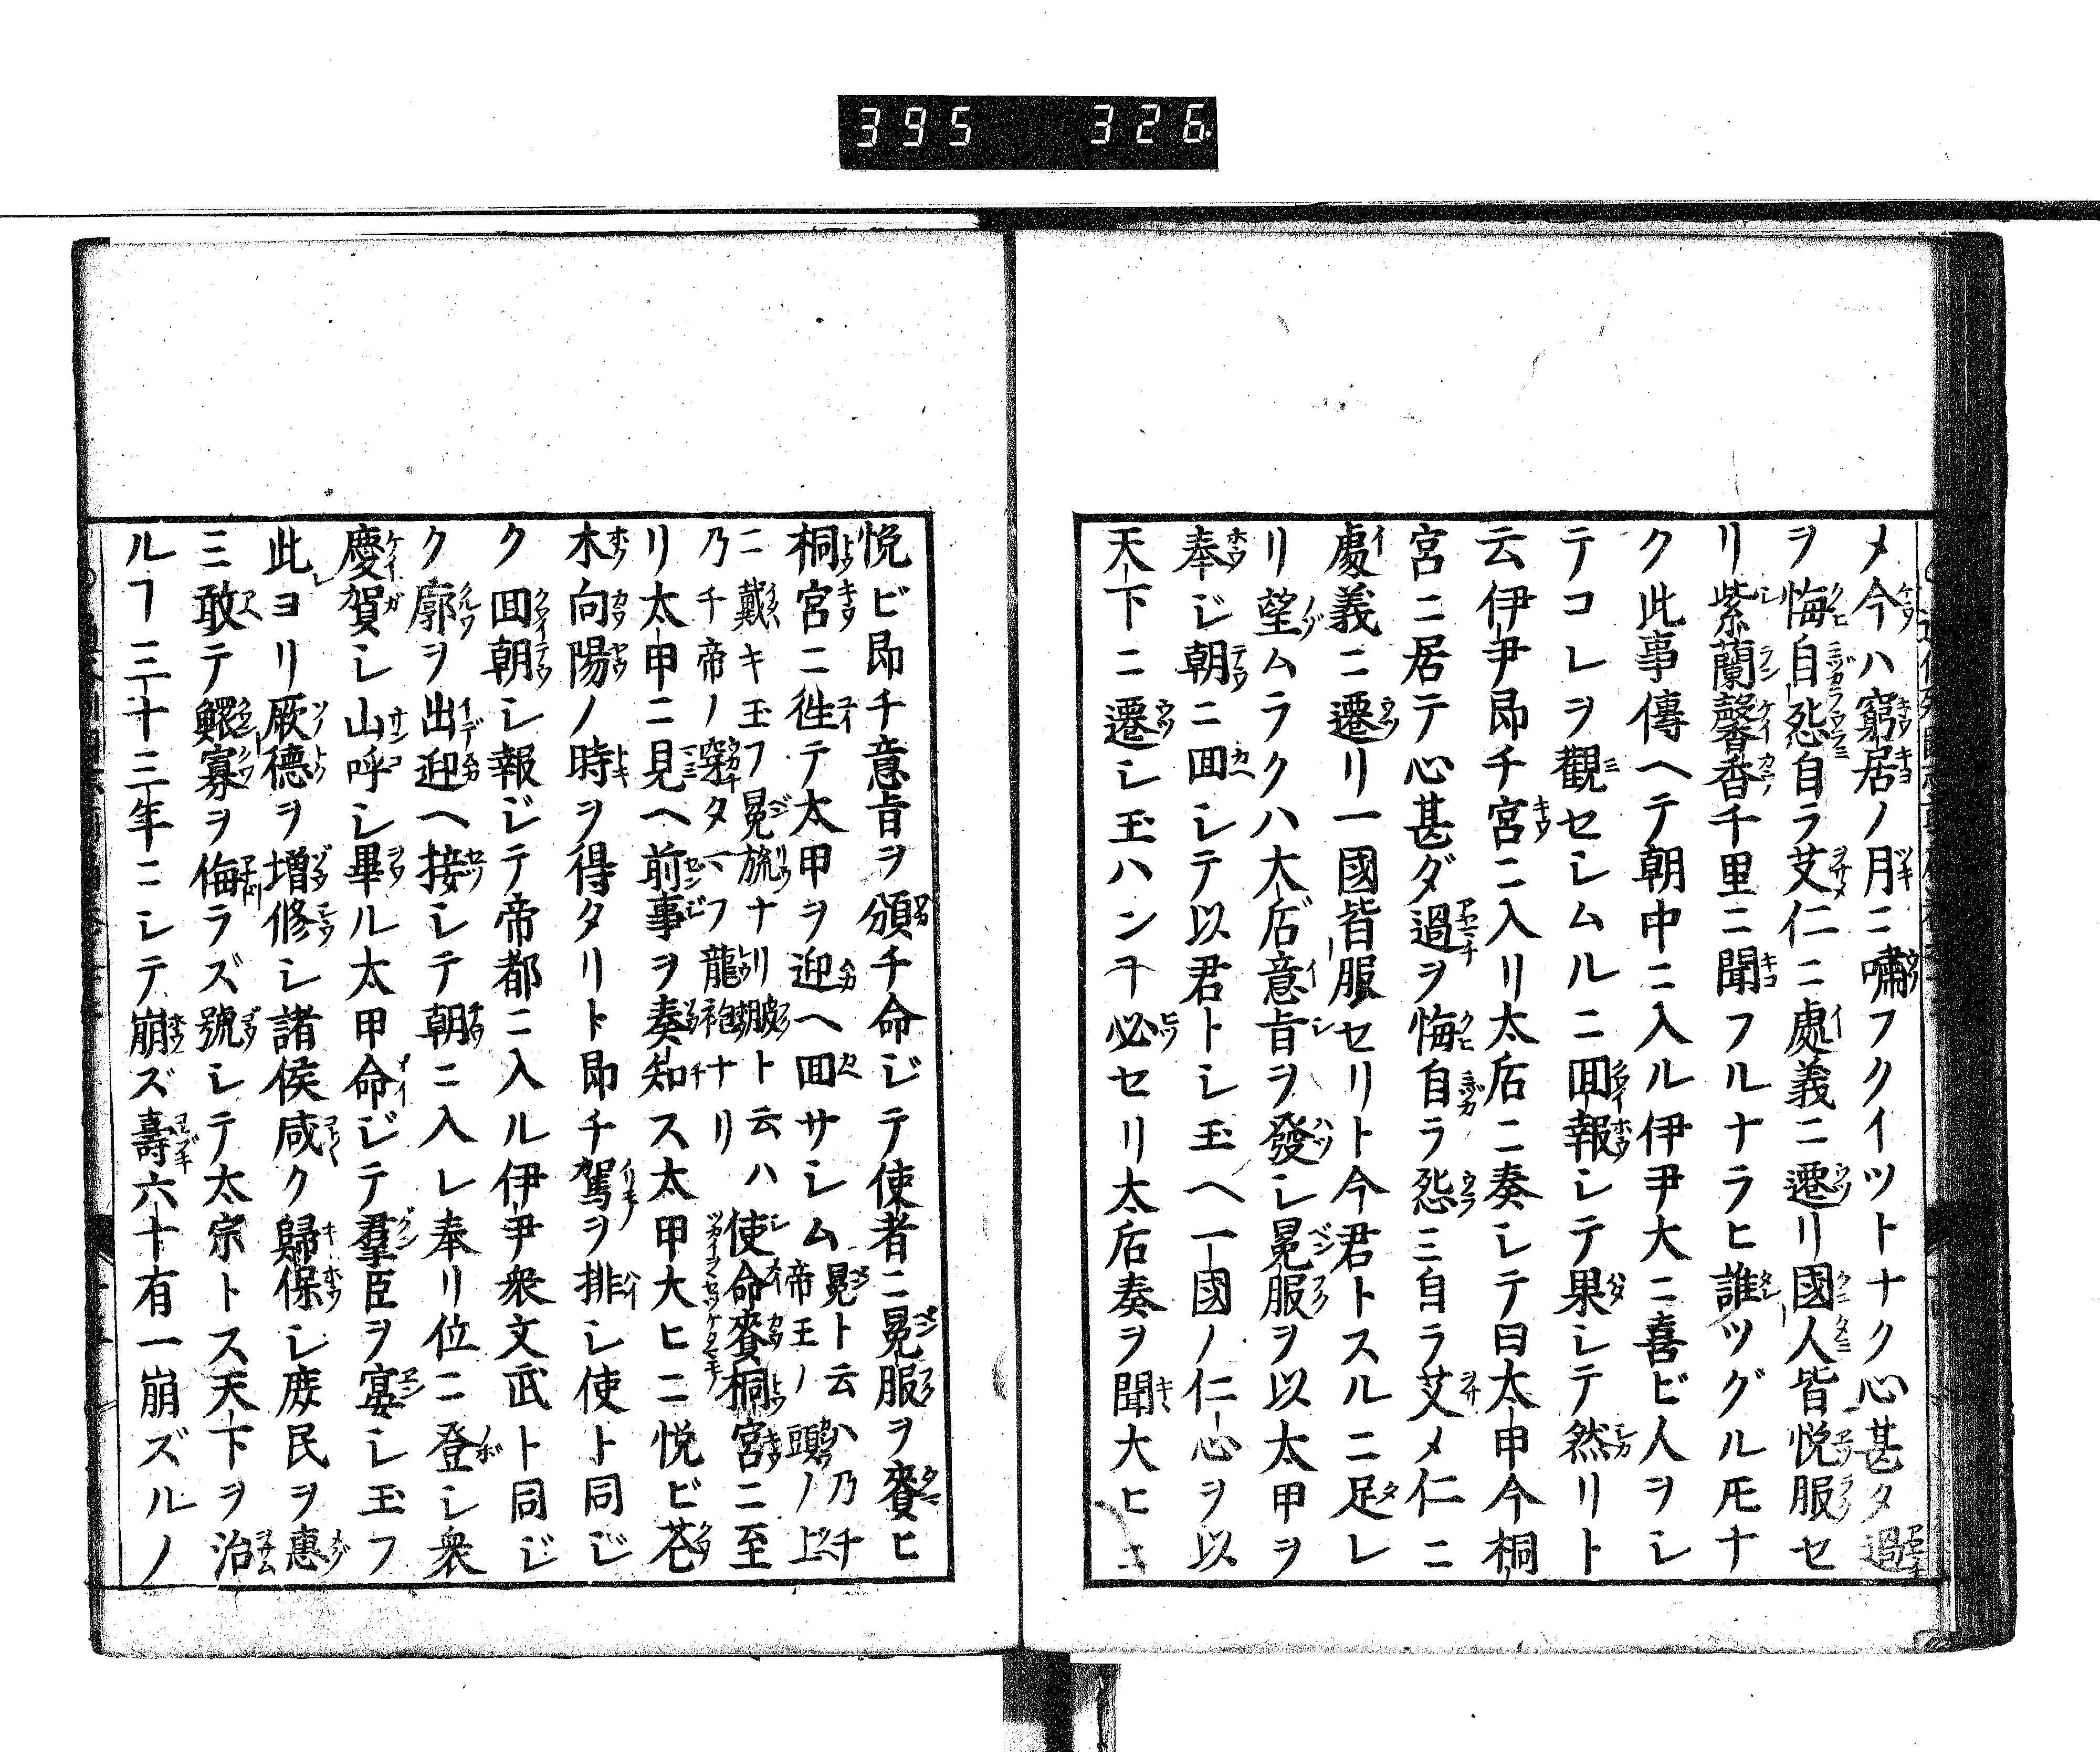 395 326
メ今ハ窮居ノ月ニ嘯フクイツトナク心甚タ過
ヲ悔自怨自ラ艾仁ニ處義ニ遷リ國人皆悦服セ
リ紫蘭馨香千里ニ聞フルナラヒ誰ツグル𪜈ナ
ク此事傳ヘテ朝中ニ入ル伊尹大ニ喜ビ人ヲシ
テコレヲ觀セシムルニ囬報シテ果シテ然リト
云伊尹即チ宮ニ入リ太后ニ奏シテ曰太甲今桐
宮ニ居テ心甚ダ過ヲ悔自ラ怨ミ自ラ艾メ仁ニ
處義ニ遷リ一國皆服セリト今君トスルニ足レ
リ望ムラクハ大后意旨ヲ發シ冕服ヲ以太甲ヲ
奉ジ朝ニ囬シテ以君トシ玉ヘ一國ノ仁心ヲ以
天下ニ遷シ玉ハンヿ必セリ太后奏ヲ聞大ヒニ
悦ビ即チ意旨ヲ頒チ命ジテ使者ニ冕服ヲ賚ヒ
桐宮ニ徃テ太甲ヲ迎ヘ囬サシム冕ト云ハ乃チ帝王ノ頭ノ上
ニ戴キ玉フ冕旒ナリ服ト云ハ乃チ帝ノ穿タマフ龍袍ナリ使命賚桐宮ニ至
リ太甲ニ見ヘ前事ヲ奏知ス太甲大ヒニ悦ビ芲
木向陽ノ時ヲ得タリト即チ駕ヲ排シ使ト同ジ
ク囬朝シ報ジテ帝都ニ入ル伊尹衆文武ト同ジ
ク廓ヲ出迎ヘ接シテ朝ニ入レ奉リ位ニ登シ衆
慶賀シ山呼シ畢ル太甲命ジテ羣臣ヲ宴シ玉フ
此ヨリ厥德ヲ增修シ諸侯咸ク歸保シ庻民ヲ惠
ミ敢テ鰥寡ヲ侮ラズ號シテ太宗トス天下ヲ治
ルヿ三十三年ニシテ崩ズ壽六十有一崩ズルノ